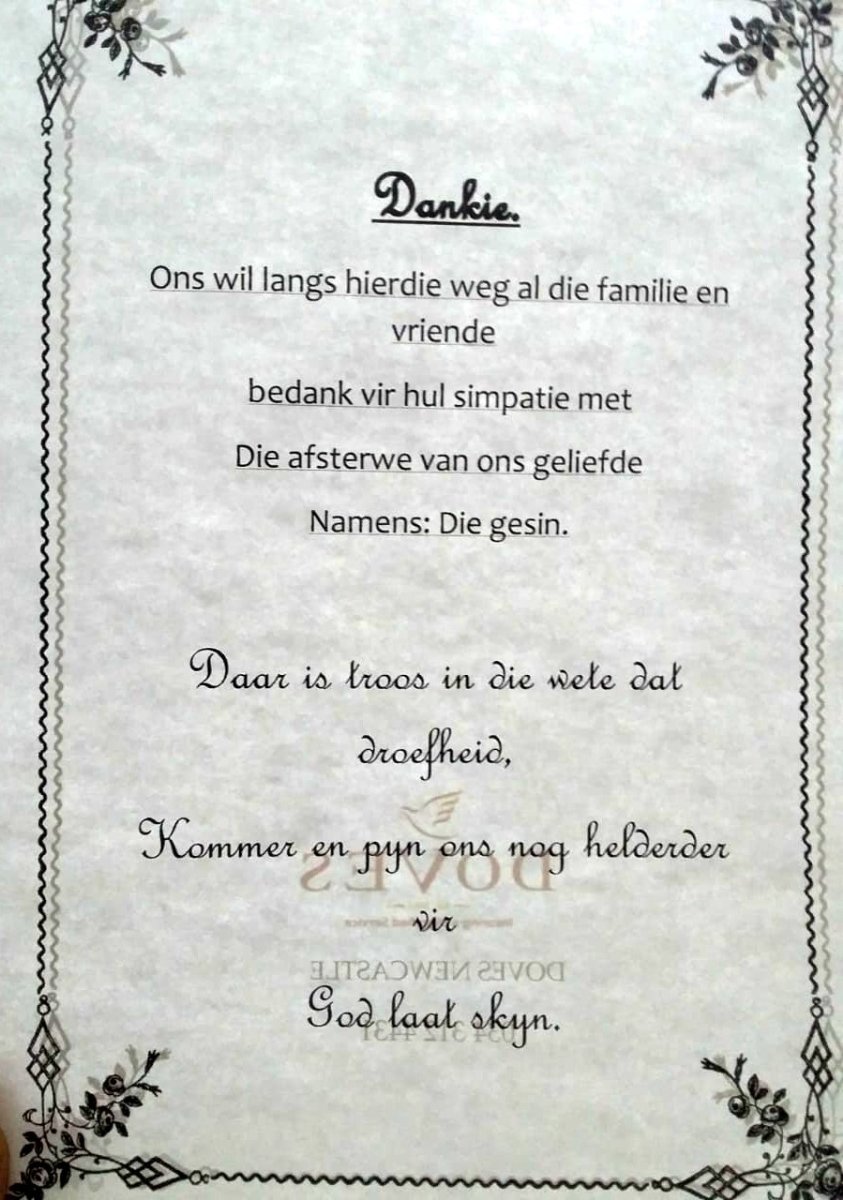 Dankie.
Ons wil langs hierdie weg al die familie en
vriende
bedank vir hul simpatie met
Die afsterwe van ons geliefde
Namens: Die gesin.
Daar is troos in die wete dat
droefheid,
Kommer en pyn ons nog helderder
DOVES
vir
DOVES NEWCASTLE
God laat skyn.